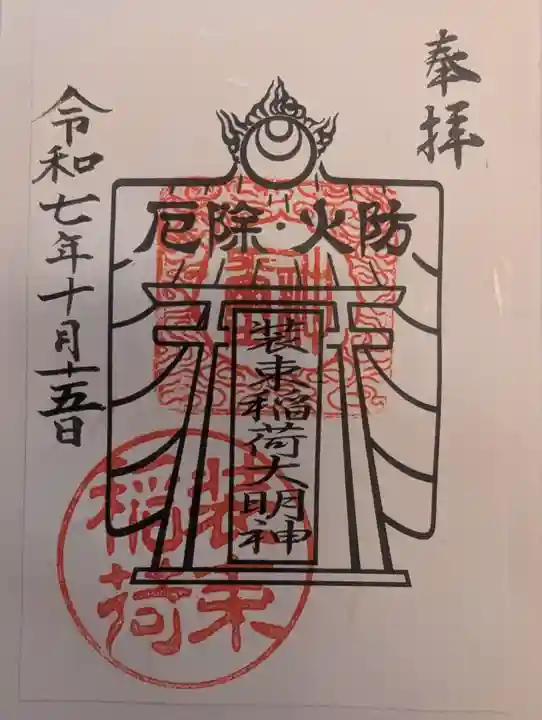 奉拝
防火・除厄
装束稲荷大明神
装束稲荷
令和七年十月十五日